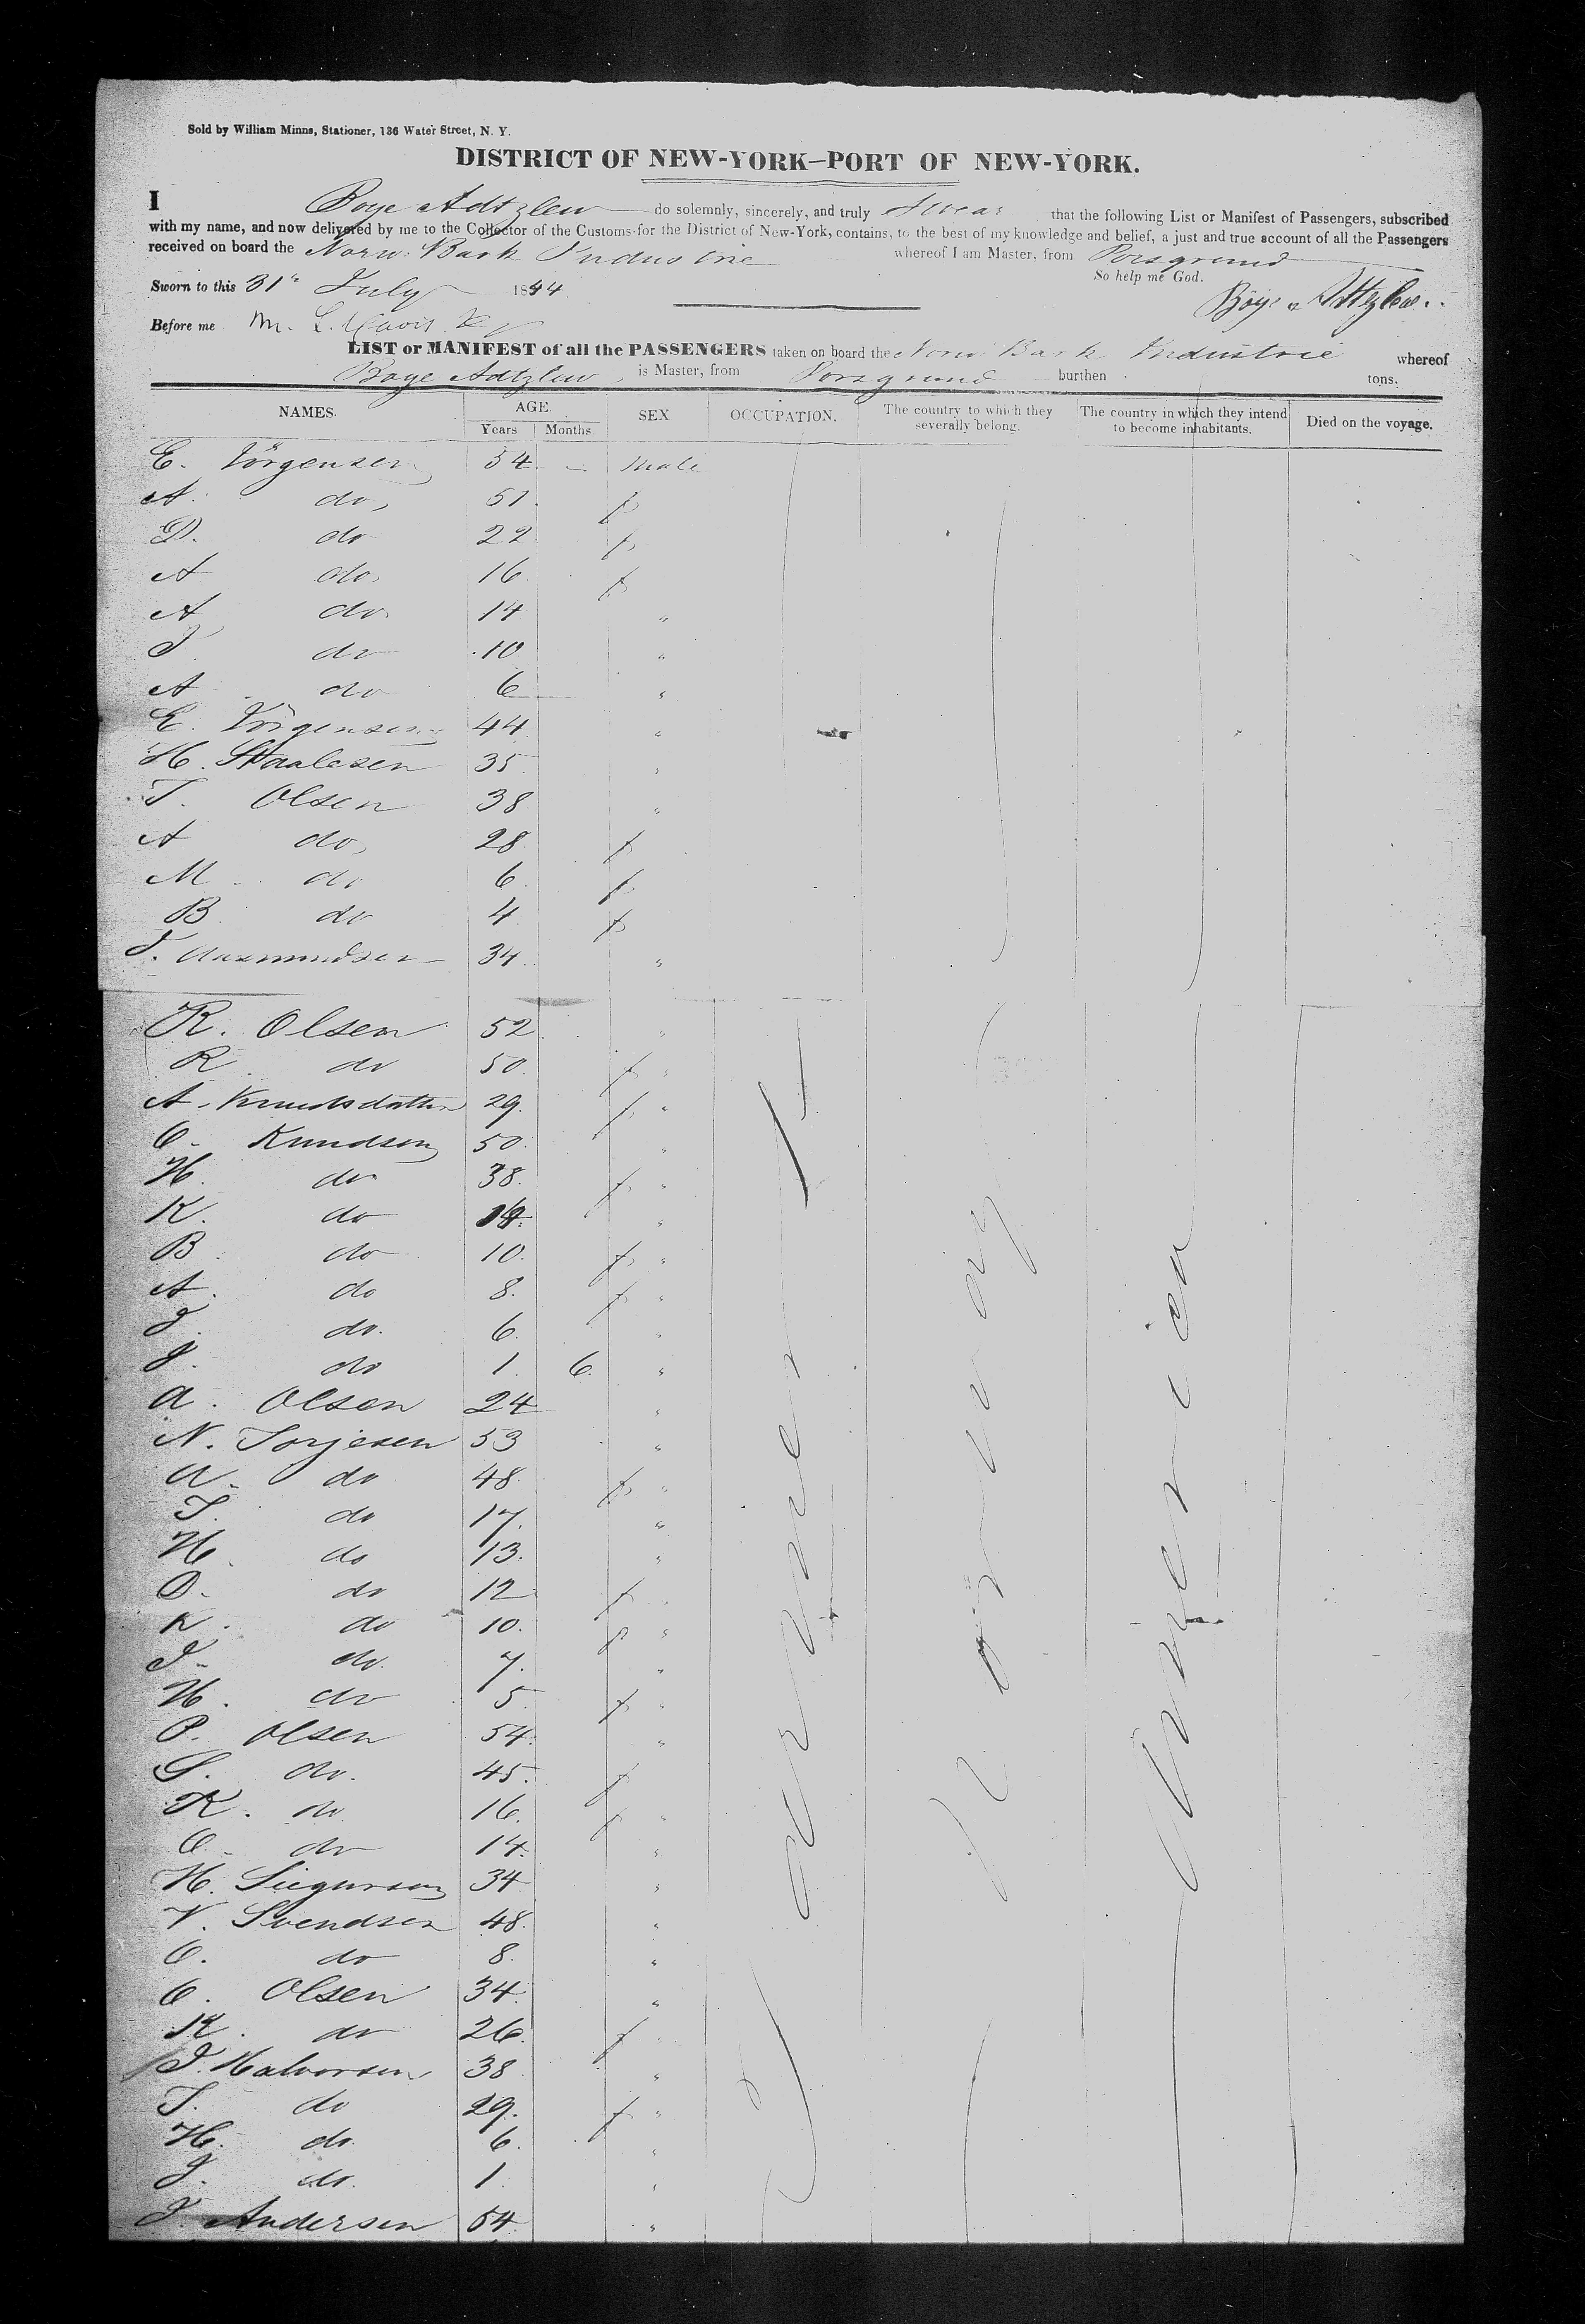 Sold by William Minns, Stationer, 136 Water Street, N. Y.
DISTRICT OF NEW-YORK—PORT OF NEW-YORK.
I Boye Adtzlew do solemnly, sincerely, and truly swear that the following List or Manifest of Passengers, subscribed
with my name, and now delivered by me to the Collector of the Customs for the District of New-York, contains, to the best of my knowledge and belief, a just and true account of all the Passengers
received on board the Norw. Bark Industrie whereof I am Master, from Porsgrund
So help me God.
Sworn to this 31st July 1844
Before me M. L. Davis
LIST or MANIFEST of all the PASSENGERS taken on board the Norw Bark Industrie whereof
Boye Adtzlew is Master, from Porsgrund burthen tons.
NAMES. AGE. SEX OCCUPATION. The country to which they severally belong. The country in which they intend to become inhabitants. Died on the voyage.
Years Months.
E. Jörgensen 54 - Male
A. do, 51 f
D. do 22 f
A do, 16 f
A do. 14 "
J do 10 "
A do 6 "
E. Jörgensen 44 "
H. Staalesen 35 "
T. Olsen 38 "
A do, 28 f
M do 6 f
B do 4 f
T. Aasmundsen 34 "
R. Olsen 52 "
R do 50 f "
A. Knudsdatter 29. f "
O. Knudsen 50. "
H. do 38. f "
K. do 14. "
B. do 10. f "
A. do 8. f "
J. do. 6. "
J. do 1 6. "
A. Olsen 24 "
N. Torjesen 53 "
A. do 48. f "
T. do 17. "
H. do 13. "
D. do 12 f "
K. do 10. f "
J. do. 7. "
H. do 5. f "
P. Olsen 54. "
S. do. 45. f
K. do 16. f "
O. do 14. "
H. Siegurson 34 "
V. Svendsen 48. "
O. do 8. "
O. Olsen 34. "
K. do 26. f "
J. Halvorsen 38 "
T. do 29. f "
H. do. 6. "
J. do. 1. "
J. Andersen 54. "
Farmer
Norway
America